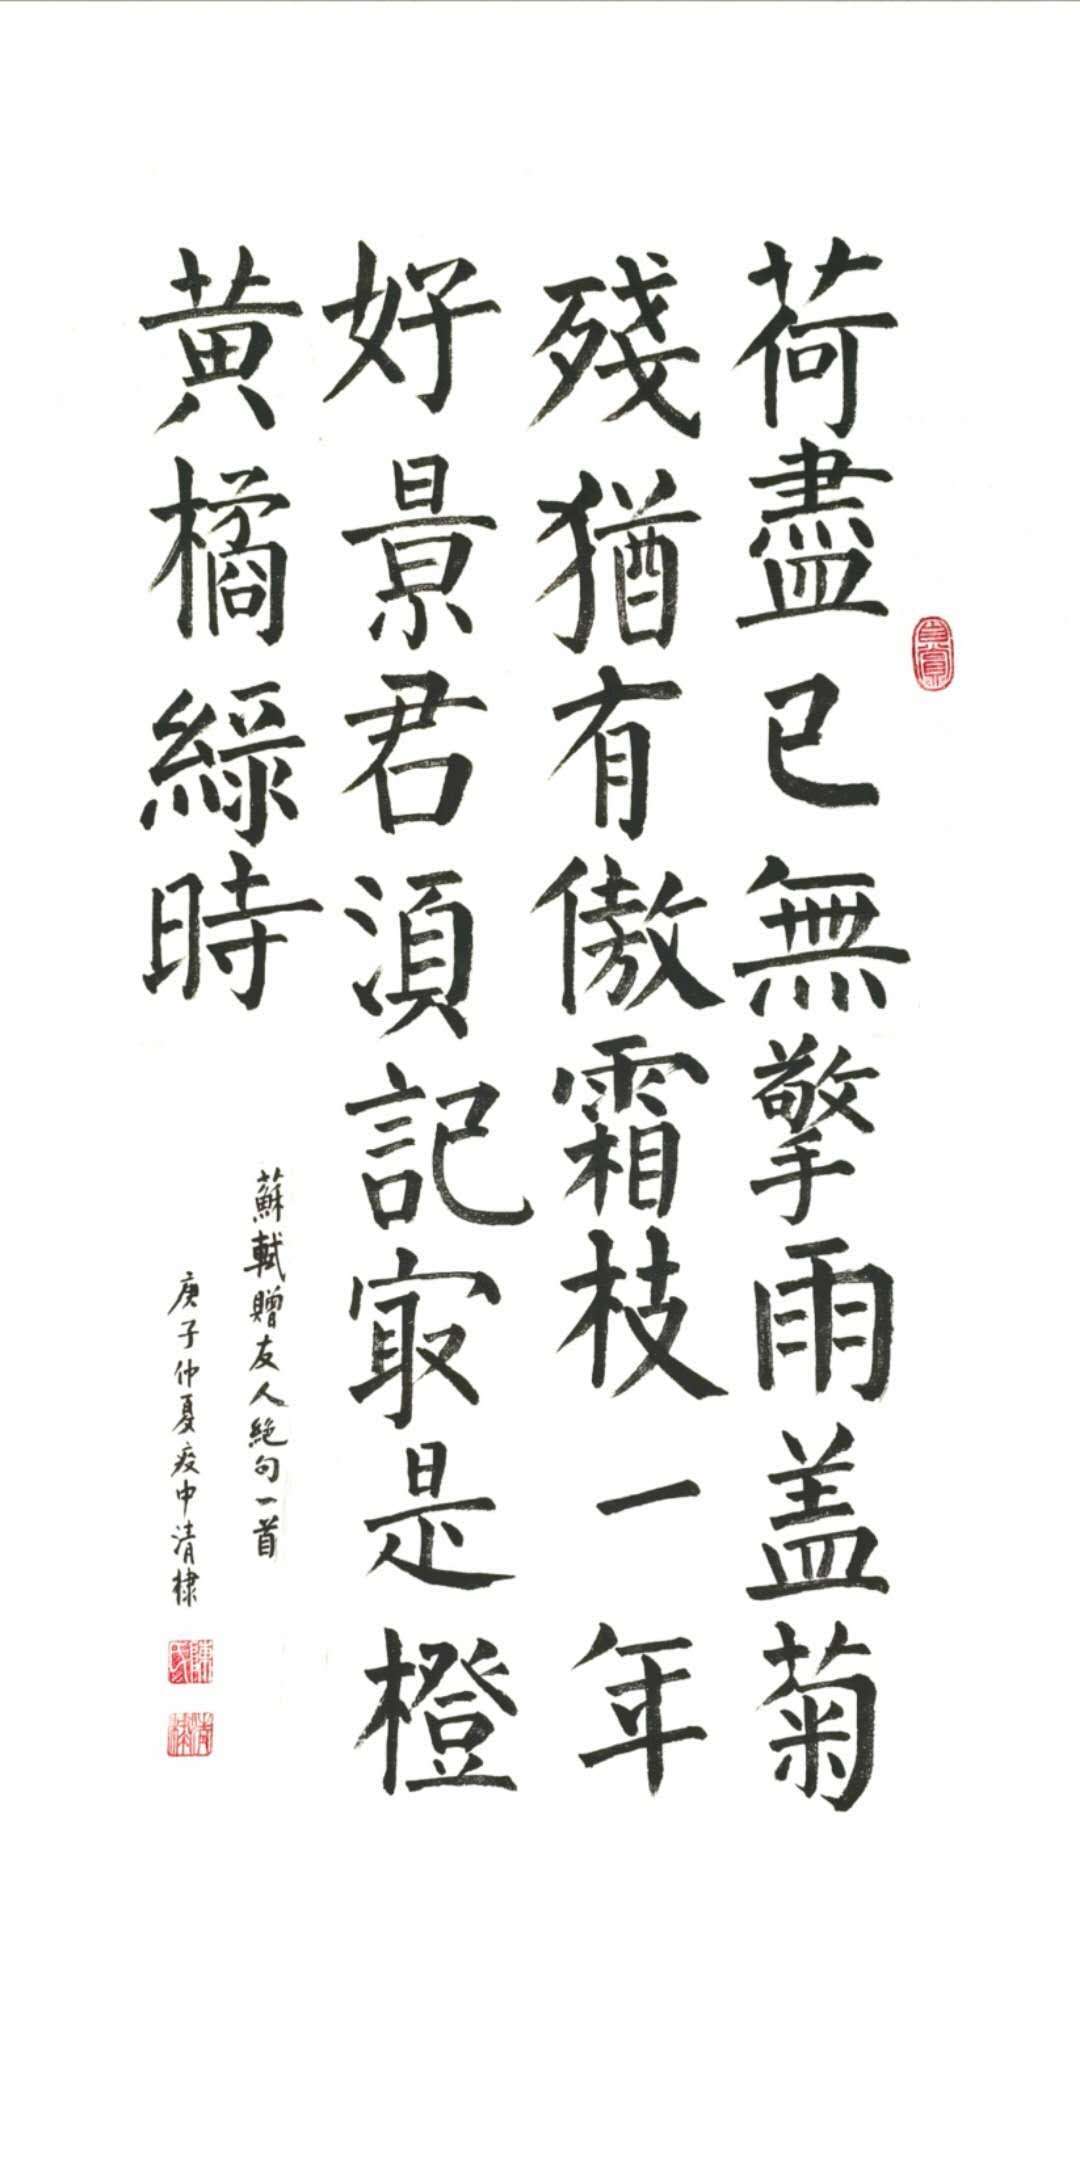 荷盡已無擎雨盖菊
殘猶有傲霜枝一年
好景君湏記冣是橙
黄橘綠時
蘇軾贈友人絶句一首
庚子仲夏疫中清棣